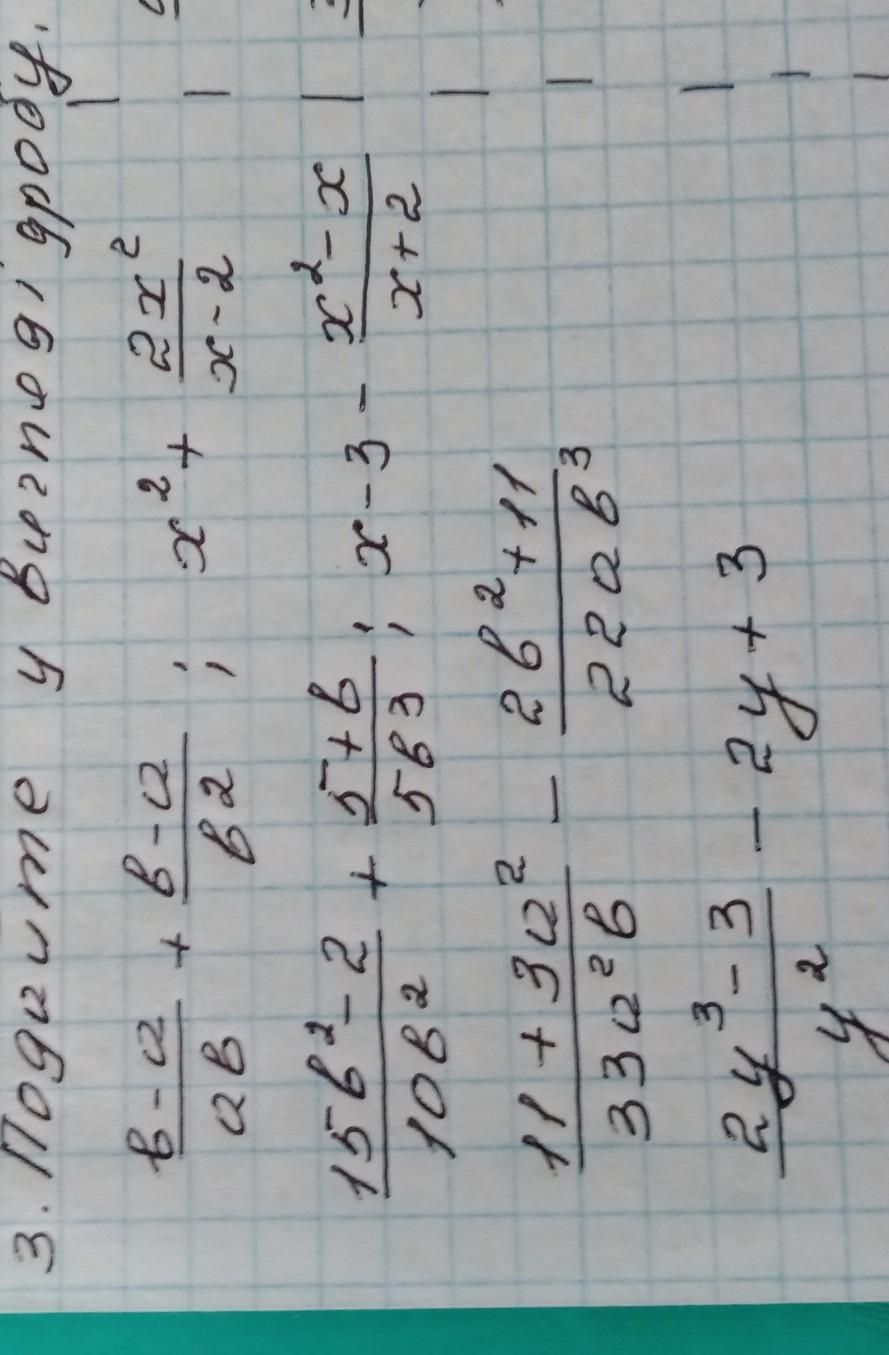 3. Подишіте у вигляді дробу.
(в-a)/(aв) + (в-a)/(в2) ; x² + (2x²)/(x-2)
(15в²-2)/(10в²) + (5+в)/(5в3) ; x-3 - (x²-x)/(x+2)
(11+3a²)/(33a²в) - (2в²+11)/(22aв³)
(2y³-3)/(y²) - 2y+3